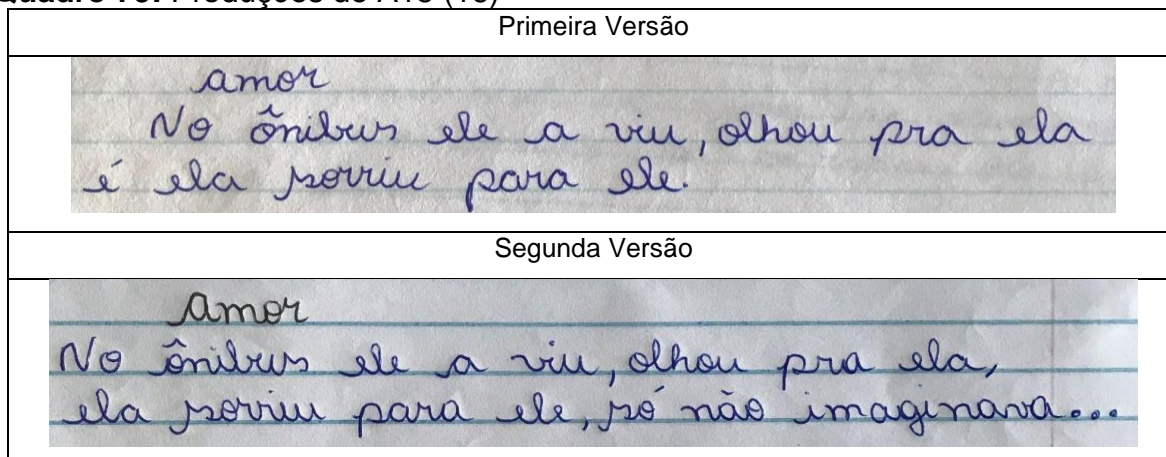 Primeira Versão
amor
No ônibus ele a viu, olhou pra ela
é ela sorriu para ele.
Segunda Versão
Amor
No ônibus ele a viu, olhou pra ela,
ela sorriu para ele, só não imaginava...